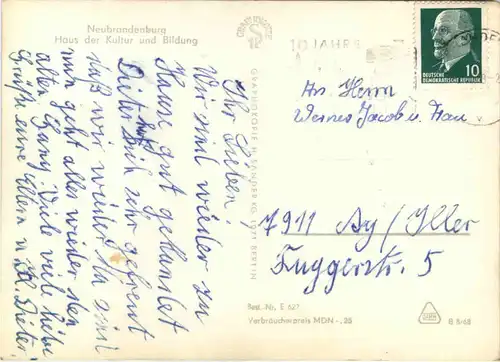 Neubrandenburg
Haus der Kultur und Bildung
Ihr Lieben!
Wir sind wieder zu
Hause gut gelandet
Dieter hat sich sehr gefreut
daß wir wieder da sind
nun geht alles wieder den
alten Gang. Viele viele liebe
Grüße eure Eltern u. Kl. Dieter.
GRAPHOKOPIE H. SANDER KG, 1071 BERLIN
10 JAHRE
DEUTSCHE
DEMOKRATISCHE REPUBLIK
10
An Herrn
Werner Jacob u. Frau
7911 Ay/Iller
Fuggerstr. 5
Best.-Nr. E 627
Verbraucherpreis MDN -,25
G 5/65